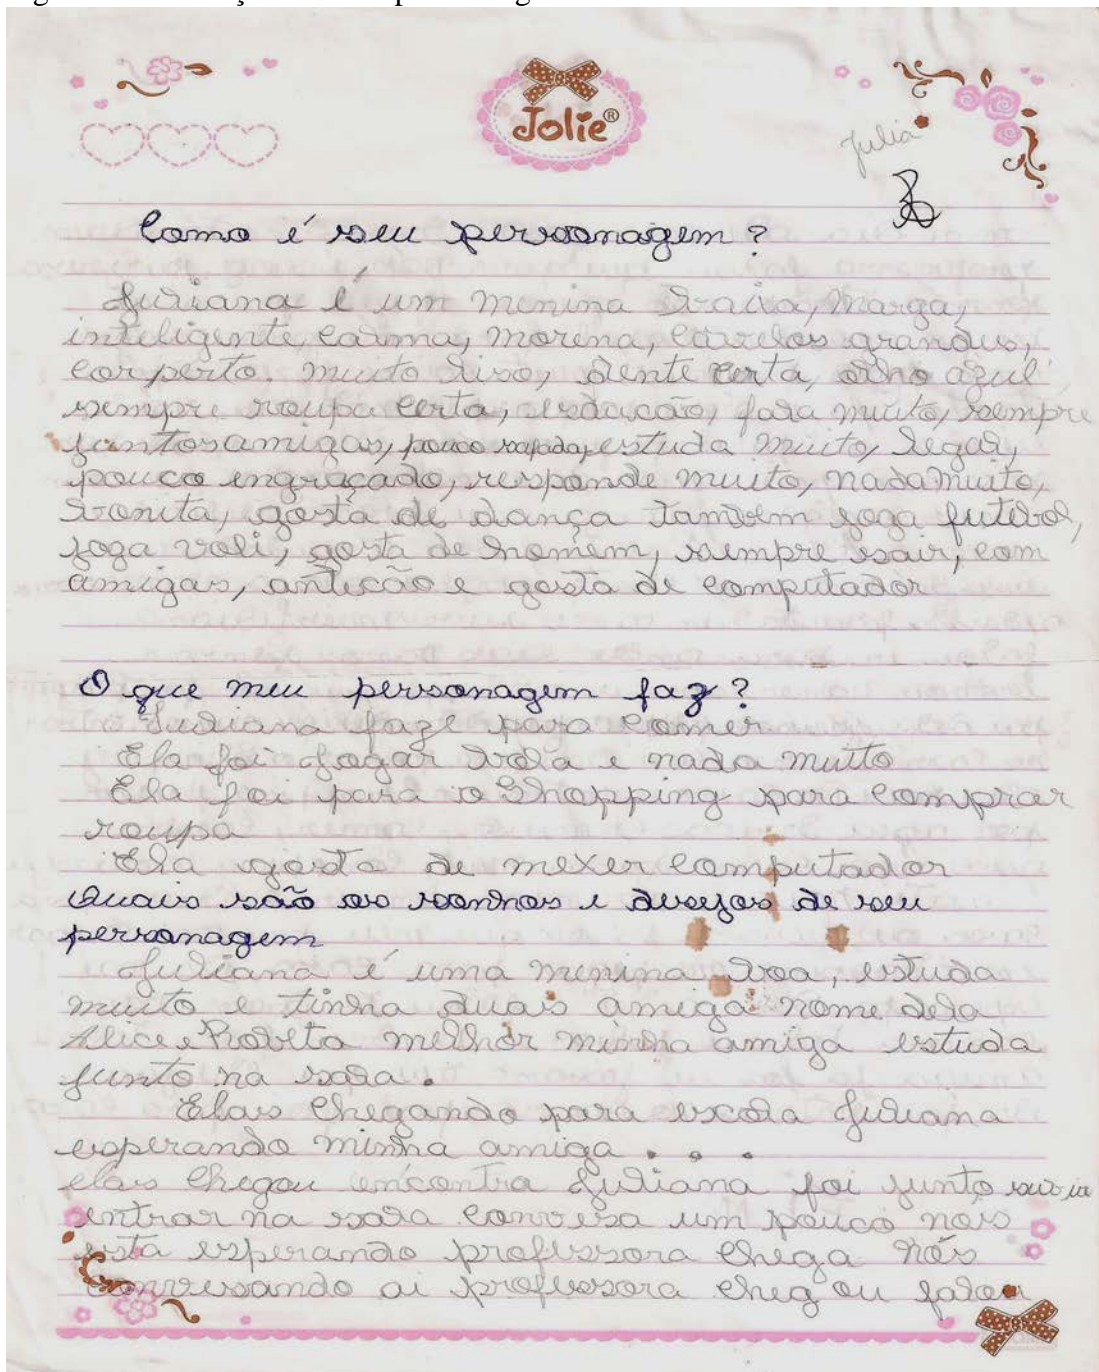 Jolie®
Julia
Como é seu personagem?
Juliana é um menina baixa, marga,
inteligente, calma, morena, cabelos grandes,
cor perto. muito liso, dente certa, olho azul
sempre roupa certa, educação, fala muito, sempre
juntos amigas, pouco estuda muito, legal,
pouco engraçado, responde muito, nada muito,
bonita, gosta de dança também joga futebol,
joga voli, gosta de homem, sempre sair, com
amigas, e gosta de computador
O que meu personagem faz?
Juliana faze para comer
Ela foi jogar bola e nada muito
Ela foi para o Shopping para comprar
roupa
Ela gosta de mexer computador
Quais são os sonhos e desejos de seu
personagem
Juliana é uma menina boa, estuda
muito e tinha duas amiga nome dela
Alice e melhor minha amiga estuda
junto na sala.
Elas chegando para escola Juliana
esperando minha amiga . . .
elas chegou encontra Juliana foi junto
entrar na sala conversa um pouco nós
esta esperando professora chega nós
conversando ai professora chegou falou